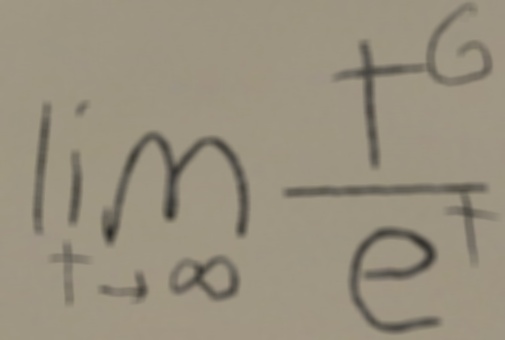 lim t→∞ t^6/e^t